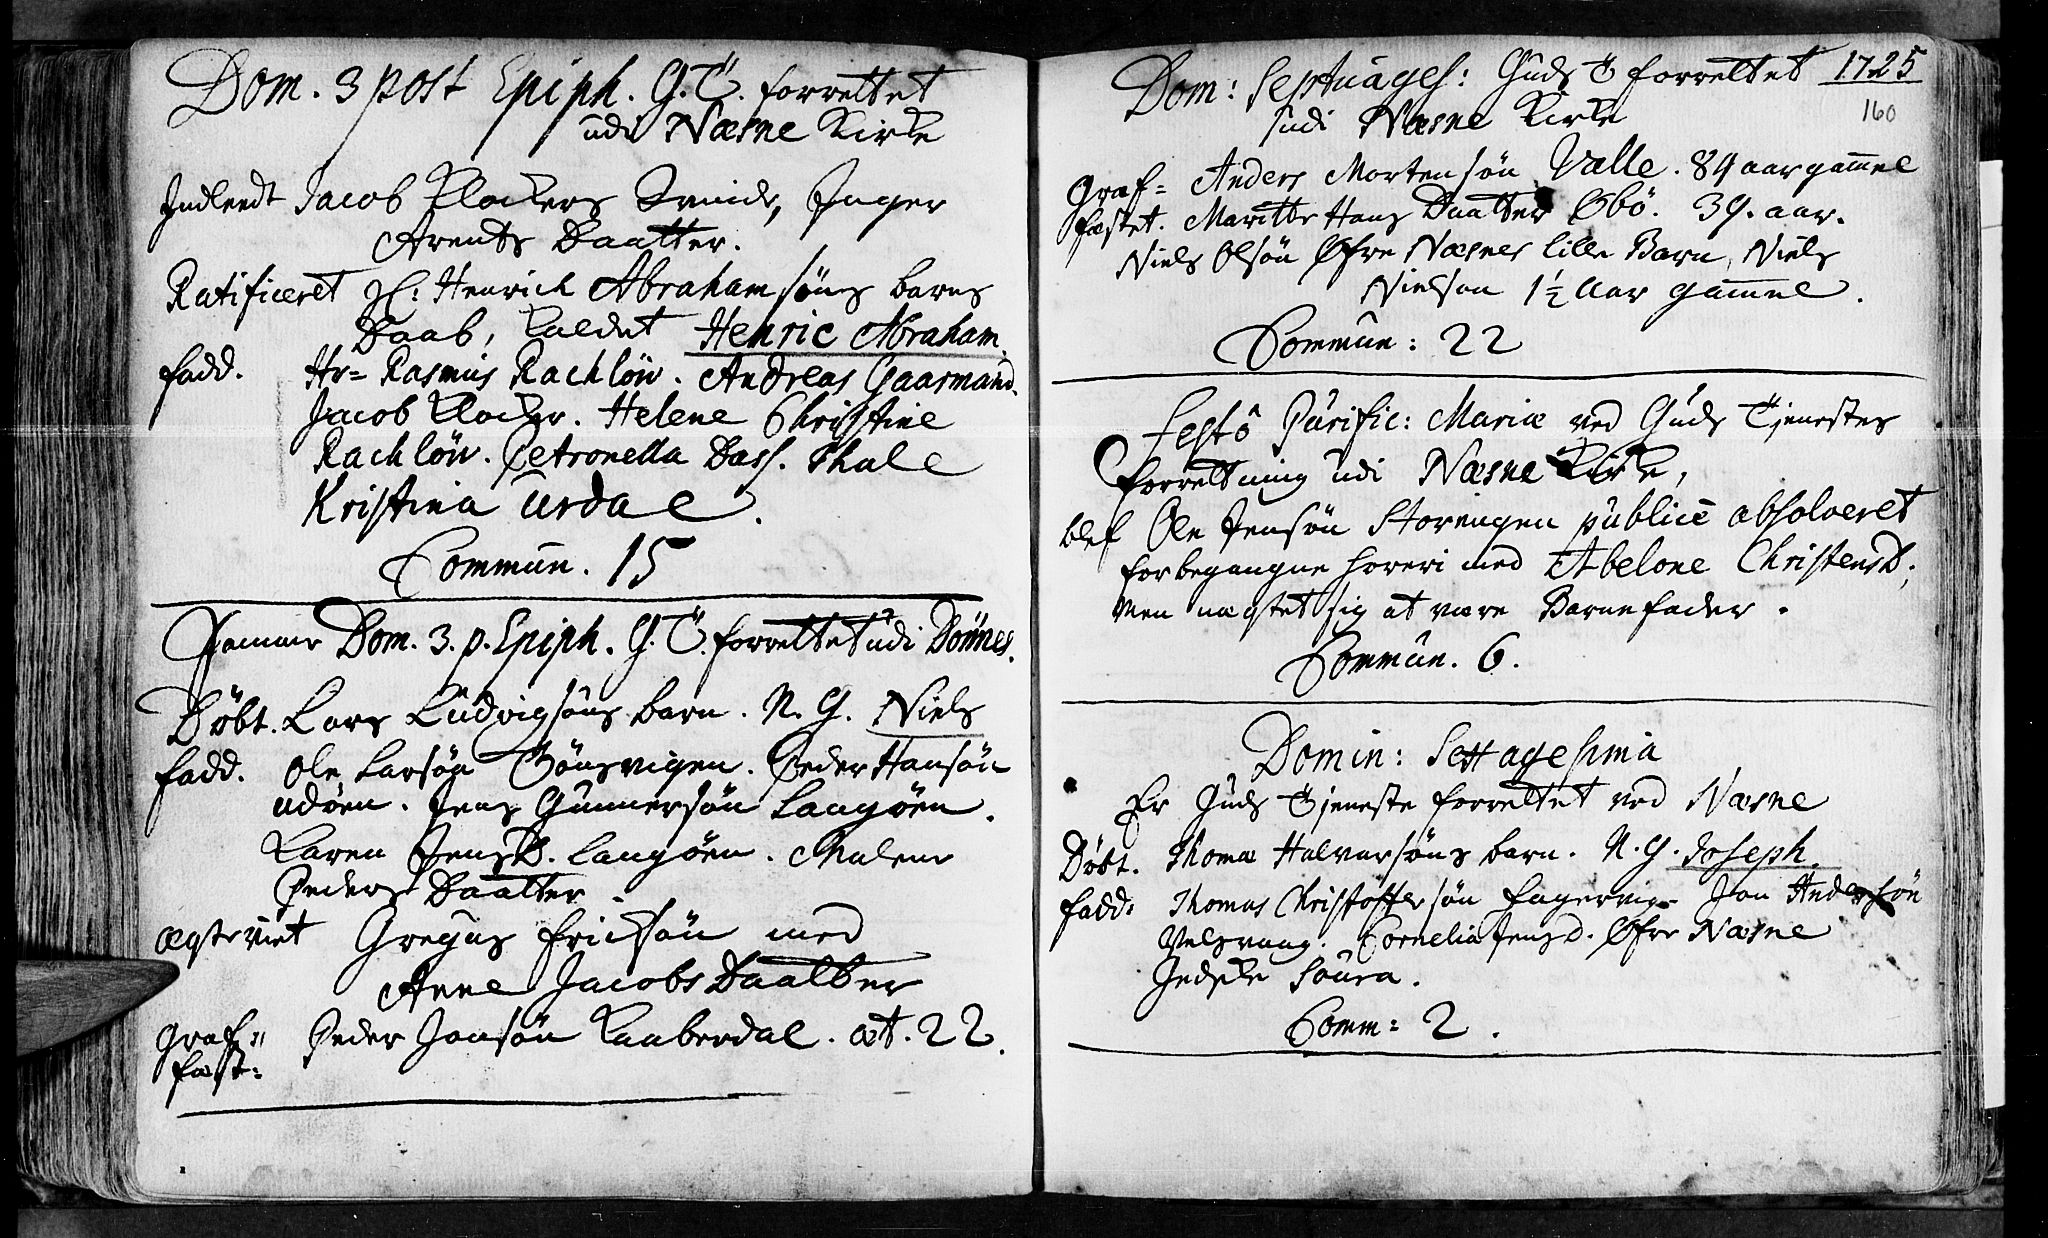 Dom. 3 post Epiph. G. T. forrettet
udi Næsne Kirke
Indleedt Jacob Klockers Qvinde, Inger
Arents Daatter.
Ratificeret Hr: Henrich Abrahamsöns barns
Daab, kaldet Henric Abraham.
fadd. Hr= Rasmus Rachlöw. Andreas Gaarmand.
Jacob Klocker. Helene Christine
Rachlöw. Petronella Dass. Thale
Kristina Urdal.
Commun. 15
Samme Dom. 3. p. Epiph. G. T. forrettet udi Dönnes.
Döbt. Lars Ludvigsöns barn. N. G. Niels
fadd. Ole Larsön Tönsvigen. Peder Hansön
udöen. Jens Gunnersön Langöen.
Karen JensD. Langöen. Malene
Peders Daatter
ægteviet Gregus Ericksön med
Anne Jacobs Daatter
Graf= Peder Jonsön Kaaberdal. æt. 22.
fæst:
Dom: Septuages: Guds T forrettet 1725
160
udi Næsne Kirke
Graf= Anders Mortensön Valle. 84 aar gammel
fæstet. Maritte Hans Daatter Øbö. 39. aar.
Niels Olsön Øfre Næsnes lille Barn, Niels
Nielson 1½ Aar gammel.
Commun: 22
Festo Purific: Mariæ ved Guds Tjenestes
forretning udi Næsne Kirke,
blef Ole Jensön Storengen publicè absolveret
for begangne horeri med Abelone ChristensD.,
Men nægtet sig at være Barnefader.
Commun. 6.
Domin: Sexagesima
Er Guds Tjeneste forrettet ved Næsne
Döbt. Thomæ Halvorsöns barn. N. G. Joseph.
fadd: Thomas Christoffersön Fagervig. Jon Andersön
Velsvaag. Cornelia Jensd. Øfre Næsne
Soura.
Comm: 2.